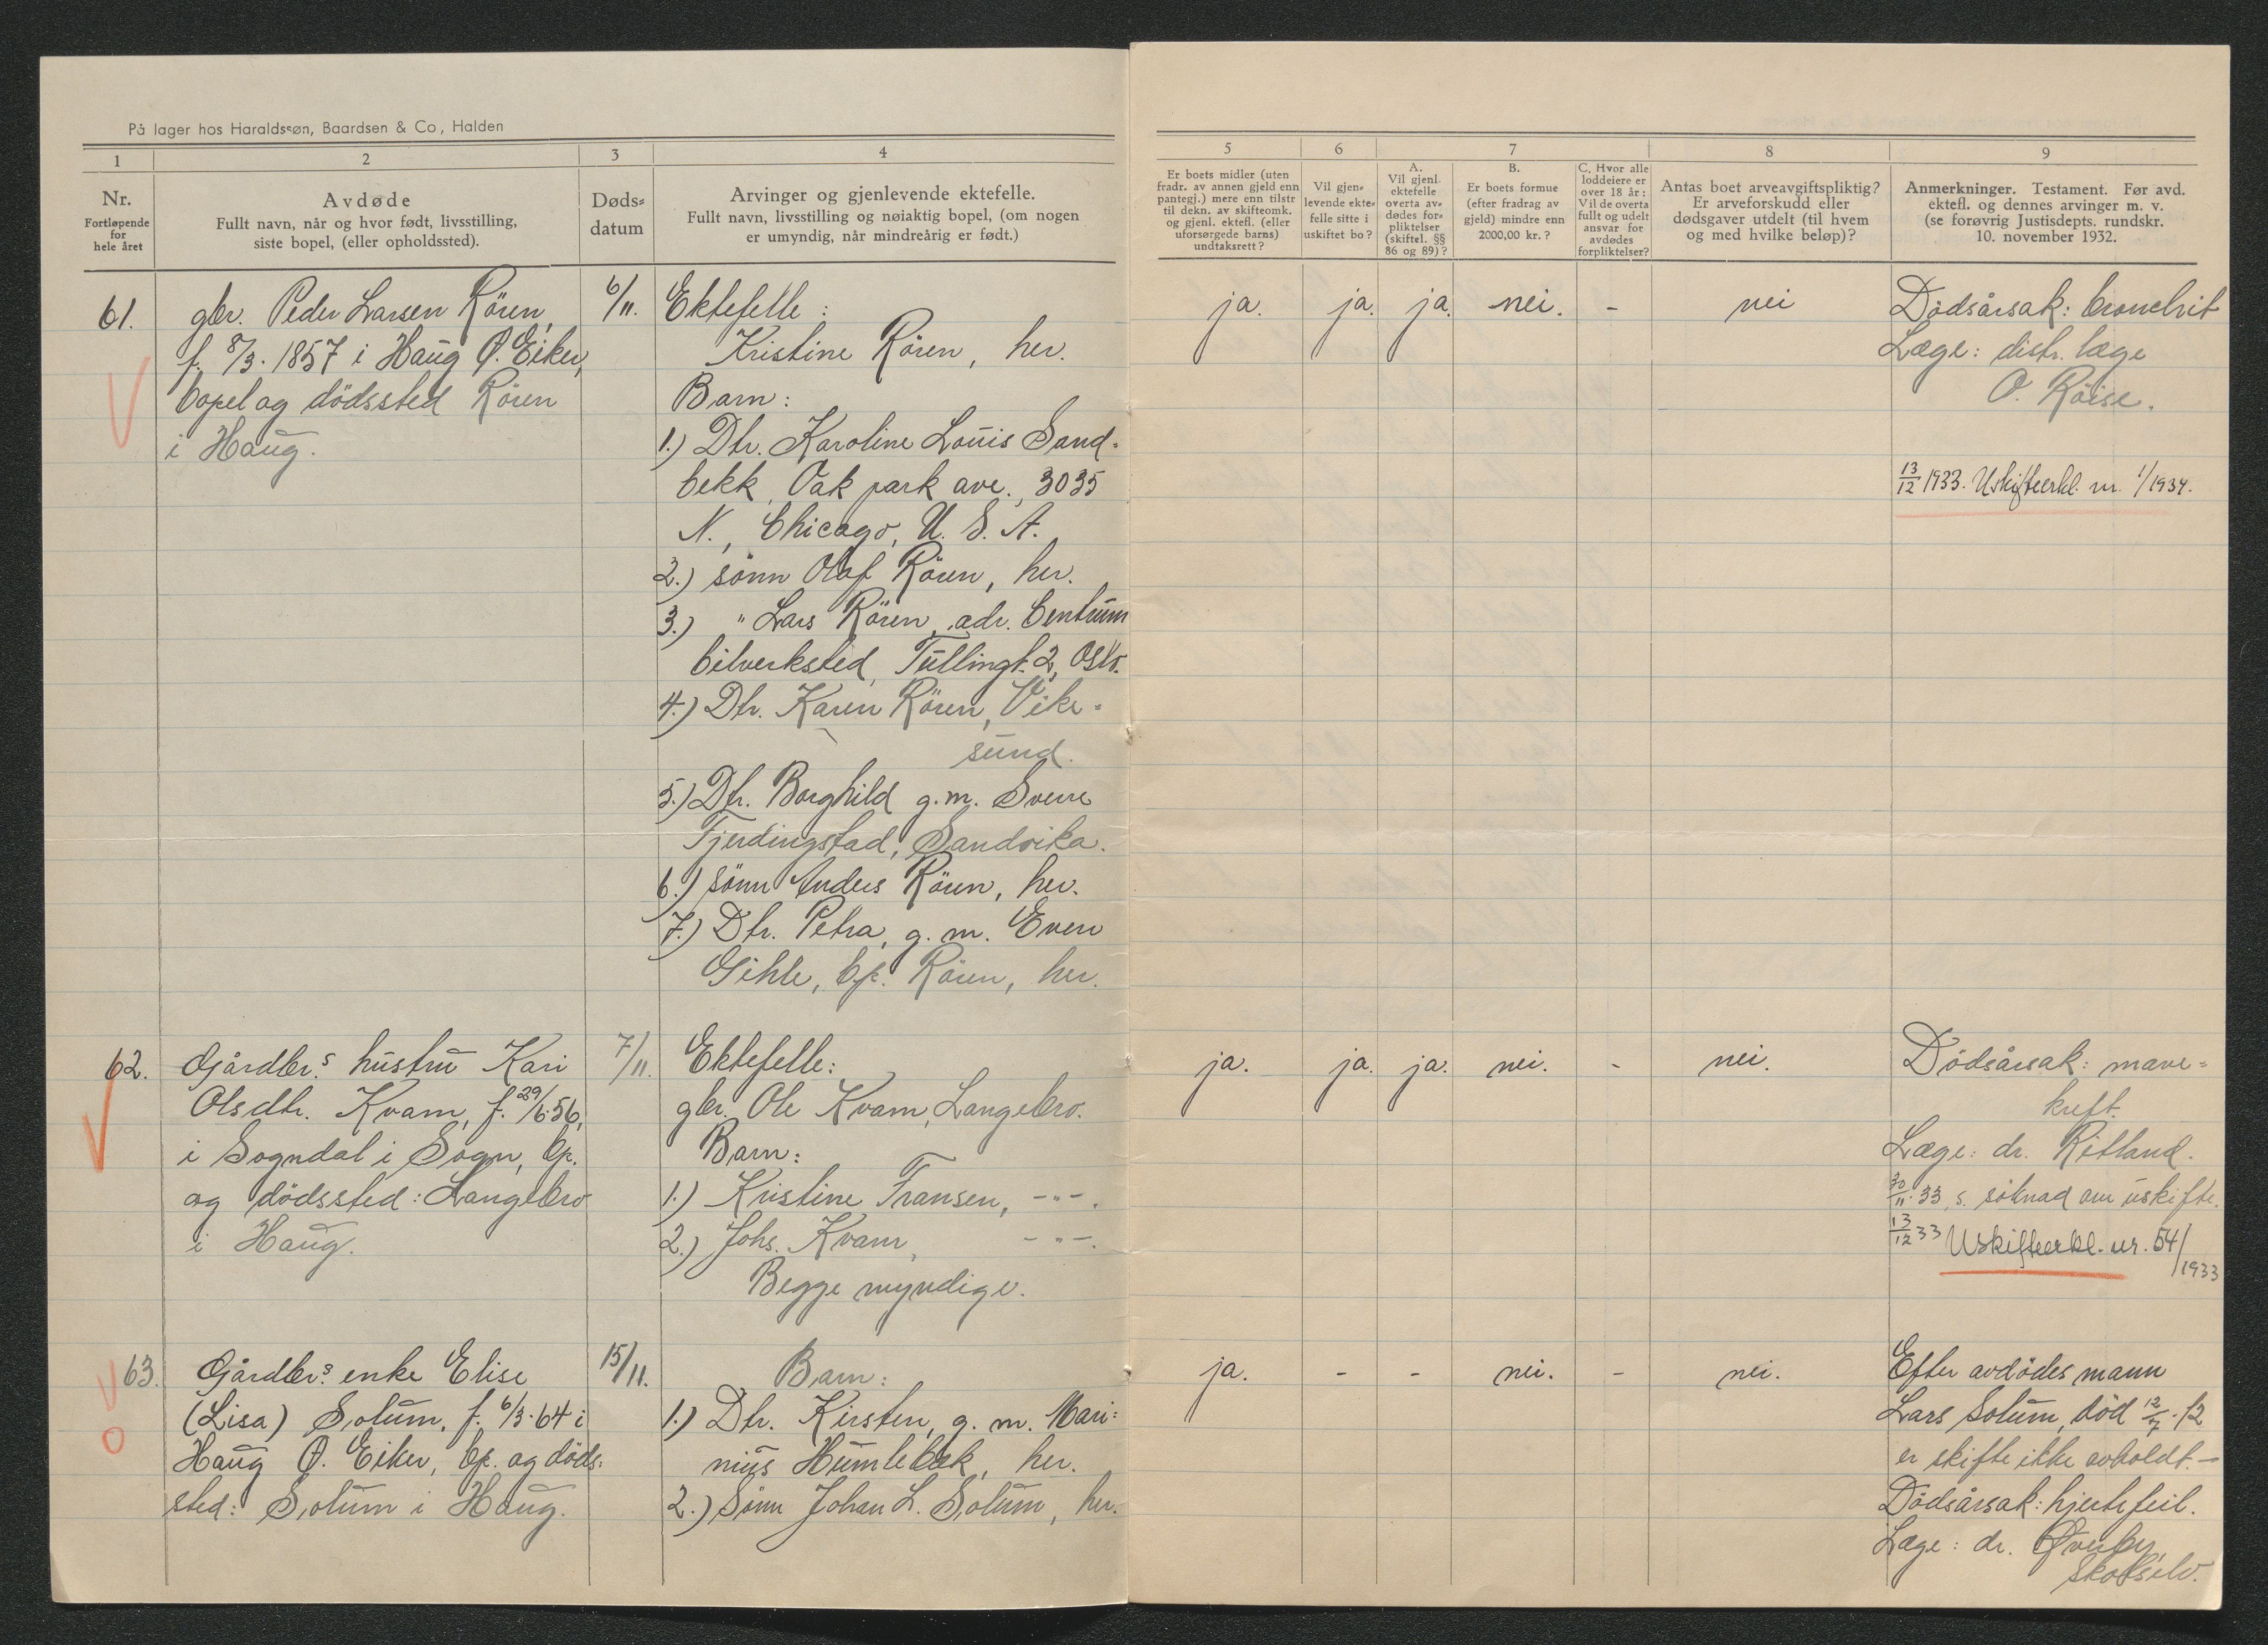 På lager hos Haraldssøn, Baardsen & Co, Halden
1
2
3
4
Nr.
Fortløpende
for
hele året
Avdøde
Fullt navn, når og hvor født, livsstilling,
siste bopel, (eller opholdssted).
Døds=
datum
Arvinger og gjenlevende ektefelle.
Fullt navn, livsstilling og nøiaktig bopel, (om nogen
er umyndig, når mindreårig er født.)
61.
gbr. Peder Larsen Rören,
f. 8/3. 1857 i Haug Ø. Eiker,
bopel og dödssted Rören
i Haug.
6/11.
Ektefelle :
Kristine Rören, her.
Barn :
1.) Dtr. Karoline Louis Sand-
bekk, Oak park ave., 3035
N., Chicago, U. S. A.
2.) sönn Olaf Rören, her.
3.) " Lars Rören, adr. Centrum
bilverksted, Tullingt. 2, Oslo.
4.) Dtr. Karen Rören, Vike-
sund.
5.) Dtr. Borghild g.m. Sverre
Fjerdingstad, Sandvika.
6.) sönn Anders Rören, her.
7.) Dtr. Petra, g. m. Even
Gihle, bp. Rören, her.
62.
Gårdbr.s hustru Kari
Olsdtr. Kvam, f. 29/6.56,
i Sogndal i Sogn, bp.
og dödssted: Langebro
i Haug.
7/11.
Ektefelle:
gbr. Ole Kvam, Langebro.
Barn:
1.) Kristine Fransen, -"-.
2.) Johs. Kvam, -"-.
Begge myndige.
63.
Gårdbr.s enke Elise
(Lisa) Solum, f. 6/3.64 i
Haug Ø. Eiker, bp. og döds-
sted: Solum i Haug.
15/11.
Barn:
1.) Dtr. Kirsten, g. m. Mari-
nius Humlebæk, her.
2.) Sönn Johan L. Solum, her.
5
6
7
8
9
Er boets midler (uten
fradr. av annen gjeld enn
pantegj.) mere enn tilstr
til dekn. av skifteomk.
og gjenl. ektefl. (eller
uforsørgede barns)
undtaksrett?
Vil gjen=
levende ekte=
felle sitte i
uskiftet bo?
A.
Vil gjenl.
ektefelle
overta av=
dødes for=
pliktelser
(skiftel. §§
86 og 89)?
B.
Er boets formue
(efter fradrag av
gjeld) mindre enn
2000,00 kr.?
C. Hvor alle
loddeiere er
over 18 år:
Vil de overta
fullt og udelt
ansvar for
avdødes
forpliktelser?
Antas boet arveavgiftspliktig?
Er arveforskudd eller
dødsgaver utdelt (til hvem
og med hvilke beløp)?
Anmerkninger. Testament. Før avd.
ektefl. og dennes arvinger m. v.
(se forøvrig Justisdepts. rundskr.
10. november 1932.
ja. ja. ja. nei. - nei
Dödsårsak: bronchit
Læge: distr. læge
O. Röise.
13/12 1933. Uskifteerkl. nr. 1/1934.
ja. ja. ja. nei. - nei.
Dödsårsak: mave-
kreft.
Læge: dr. Ritland.
30/11.33, s. söknad om uskifte.
13/12 33 Uskifteerkl. nr. 54/
1933
ja. - - nei. - nei.
Efter avdödes mann
Lars Solum, död 12/7.12
er skifte ikke avholdt.-
Dödsårsak: hjertefeil.
Læge: dr. Øverby,
Skotselv.